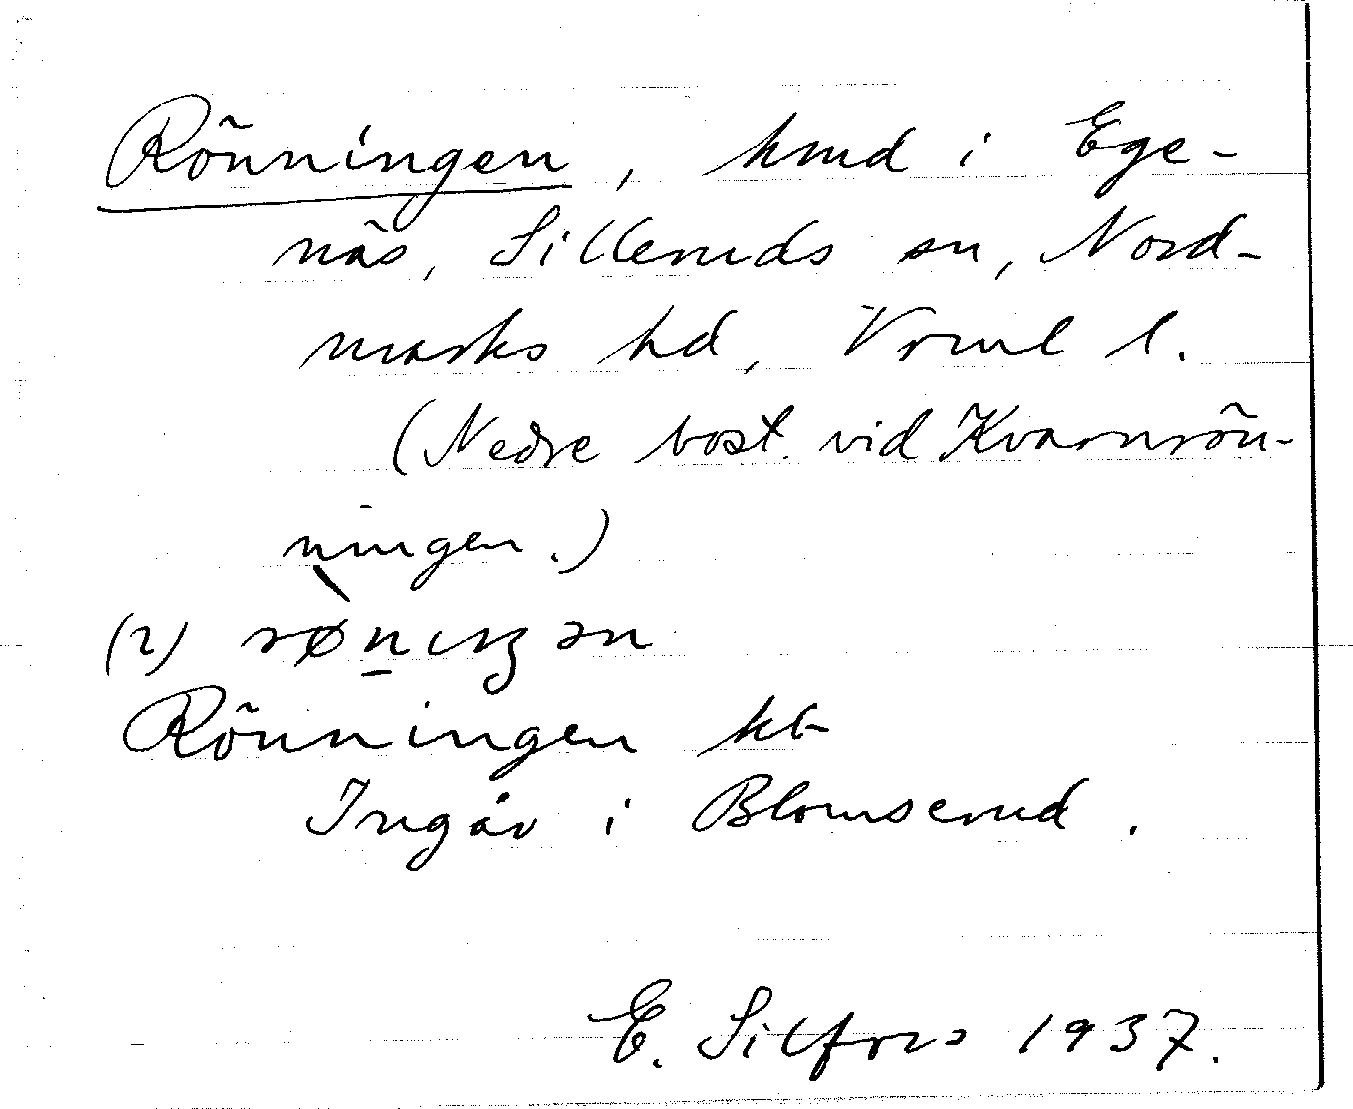 Rönningen, hmd i Ege-
näs, Silleruds sn, Nord-
marks hd, Vrml l.
(Nedre bost. vid Kvarnrön-
ningen.)
(2) 
Rönningen kb
Ingår i Blomserud.
E. Silfors 1937.